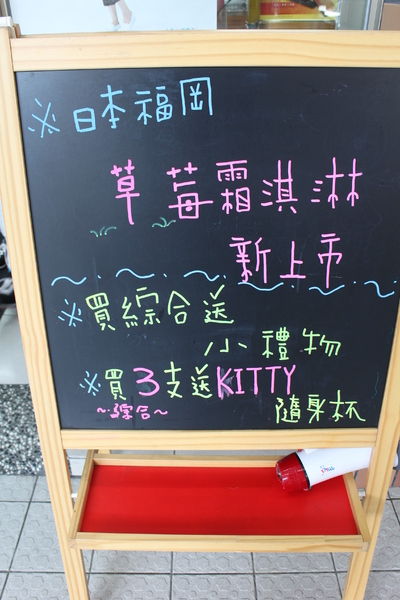 ※日本福岡
草莓霜淇淋
新上市
※買綜合送
小禮物
※買3支送KITTY
~綜合~
隨身杯